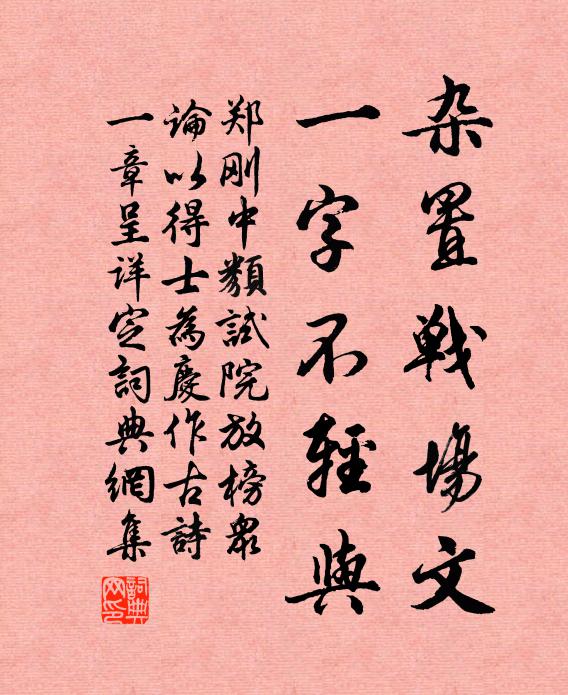 杂置戰場文
一字不輕與
郑刚中類試院放榜眾
論以得士為慶作古詩
一章呈详定詞典網集
詞典网印